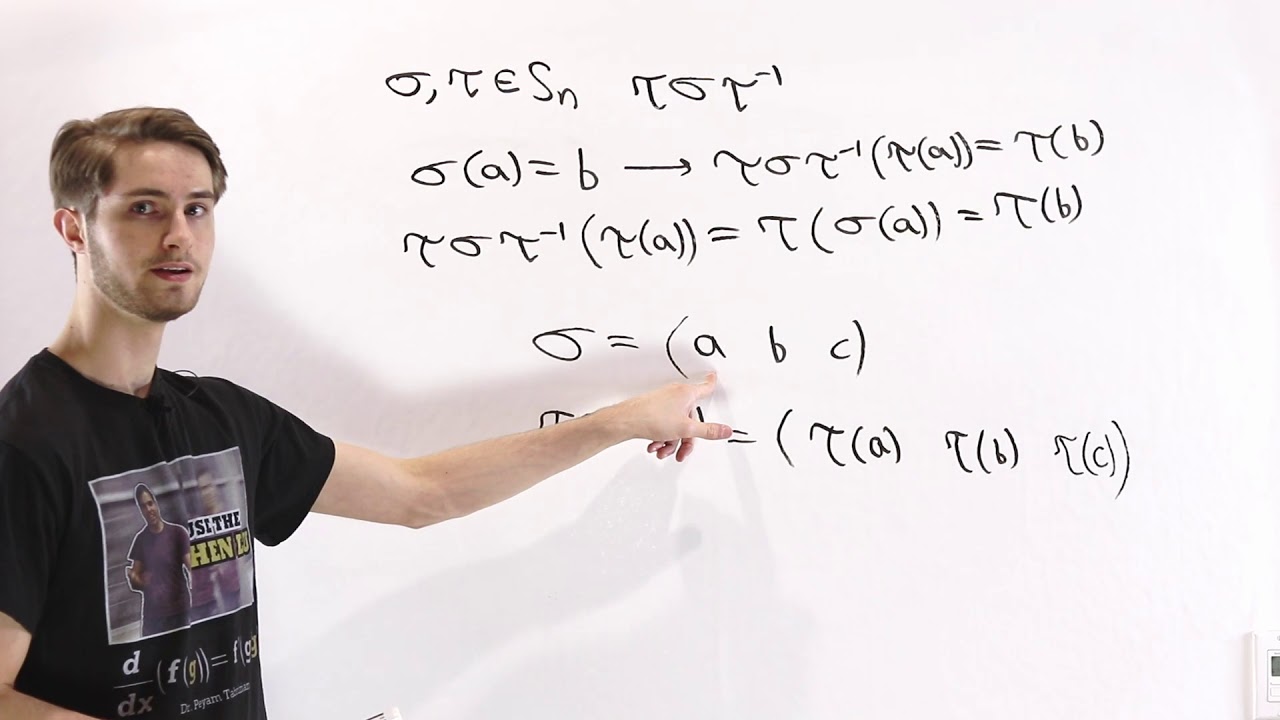 σ, τ ∈ Sₙ τστ⁻¹
σ(a) = b → τστ⁻¹(τ(a)) = τ(b)
τστ⁻¹(τ(a)) = τ(σ(a)) = τ(b)
σ = (a b c)
= (τ(a) τ(b) τ(c))
THE
HEN
d/dx (f(g)) = f'(g
Dr. Peyam